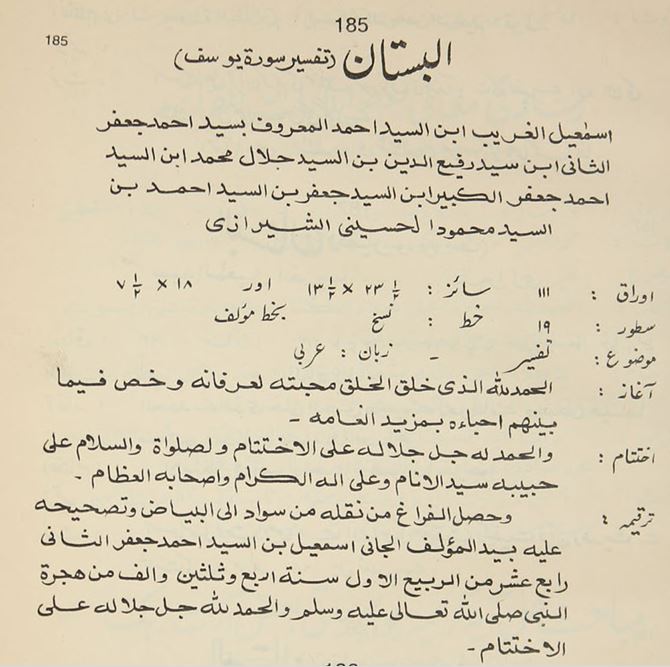 185
185
البستان (تفسیر سورۃ یوسف)
اسمٰعیل الغریب ابن السید احمد المعروف بسید احمدجعفر
الثانی ابن سید رفیع الدین بن السید جلال محمد ابن السید
احمد جعفر الکبیر ابن السید جعفر بن السید احمد بن
السید محمود الحسینی الشیرازی
اوراق : ۱۱۱ سائز : ۲۳ ۱/۲ × ۱۳ ۱/۲ اور ۱۸ × ۷ ۱/۲
سطور : ۱۹ خط : نسخ بخط مؤلف
موضوع : تفسیر - زبان : عربی
آغاز : الحمدللہ الذی خلق الخلق محبتہ لعرفانہ وخص فیما
بینھم احباءہ بمزید العامہ -
اختتام : والحمد لہ جل جلالہ علی الاختتام ولصلواۃ والسلام علی
حبیبہ سید الانام وعلی الہ الکرام واصحابہ العظام -
ترقیمہ : وحصل الفراغ من نقلہ من سواد الی البیاض وتصحیحہ
علیہ بید المؤلف الجانی اسمعیل بن السید احمدجعفر الثانی
رابع عشر من الربیع الاول سنۃ اربع وثلثین والف من ھجرۃ
النبی صلی اللہ تعالی علیہ وسلم والحمد للہ جل جلالہ علی
الاختتام -